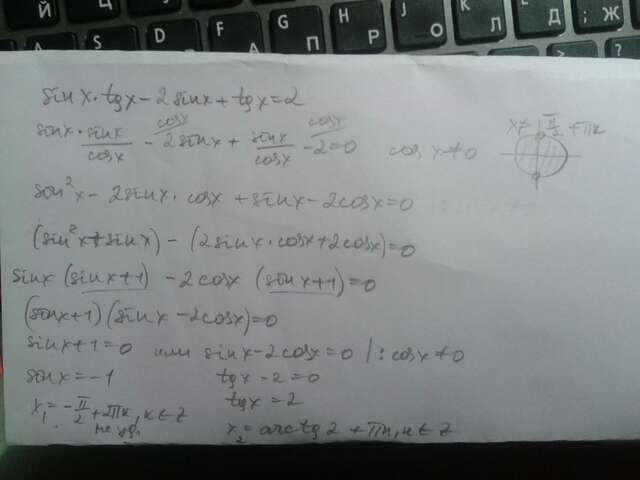 Й К Е Н Г Ш Щ
A S D F G H J K L ; Ж
П Р О Л Д
sin x · tg x − 2 sin x + tg x = 2
sin x · sin x / cos x − 2 sin x + sin x / cos x − 2 = 0 cos x ≠ 0 x ≠ π/2 + πk
sin²x − 2 sin x · cos x + sin x − 2 cos x = 0
(sin²x + sin x) − (2 sin x · cos x + 2 cos x) = 0
sin x (sin x + 1) − 2 cos x (sin x + 1) = 0
(sin x + 1)(sin x − 2 cos x) = 0
sin x + 1 = 0 или sin x − 2 cos x = 0 | : cos x ≠ 0
sin x = −1 tg x − 2 = 0
x₁ = −π/2 + 2πk, k ∈ Z tg x = 2
не уд. x₂ = arctg 2 + πn, n ∈ Z